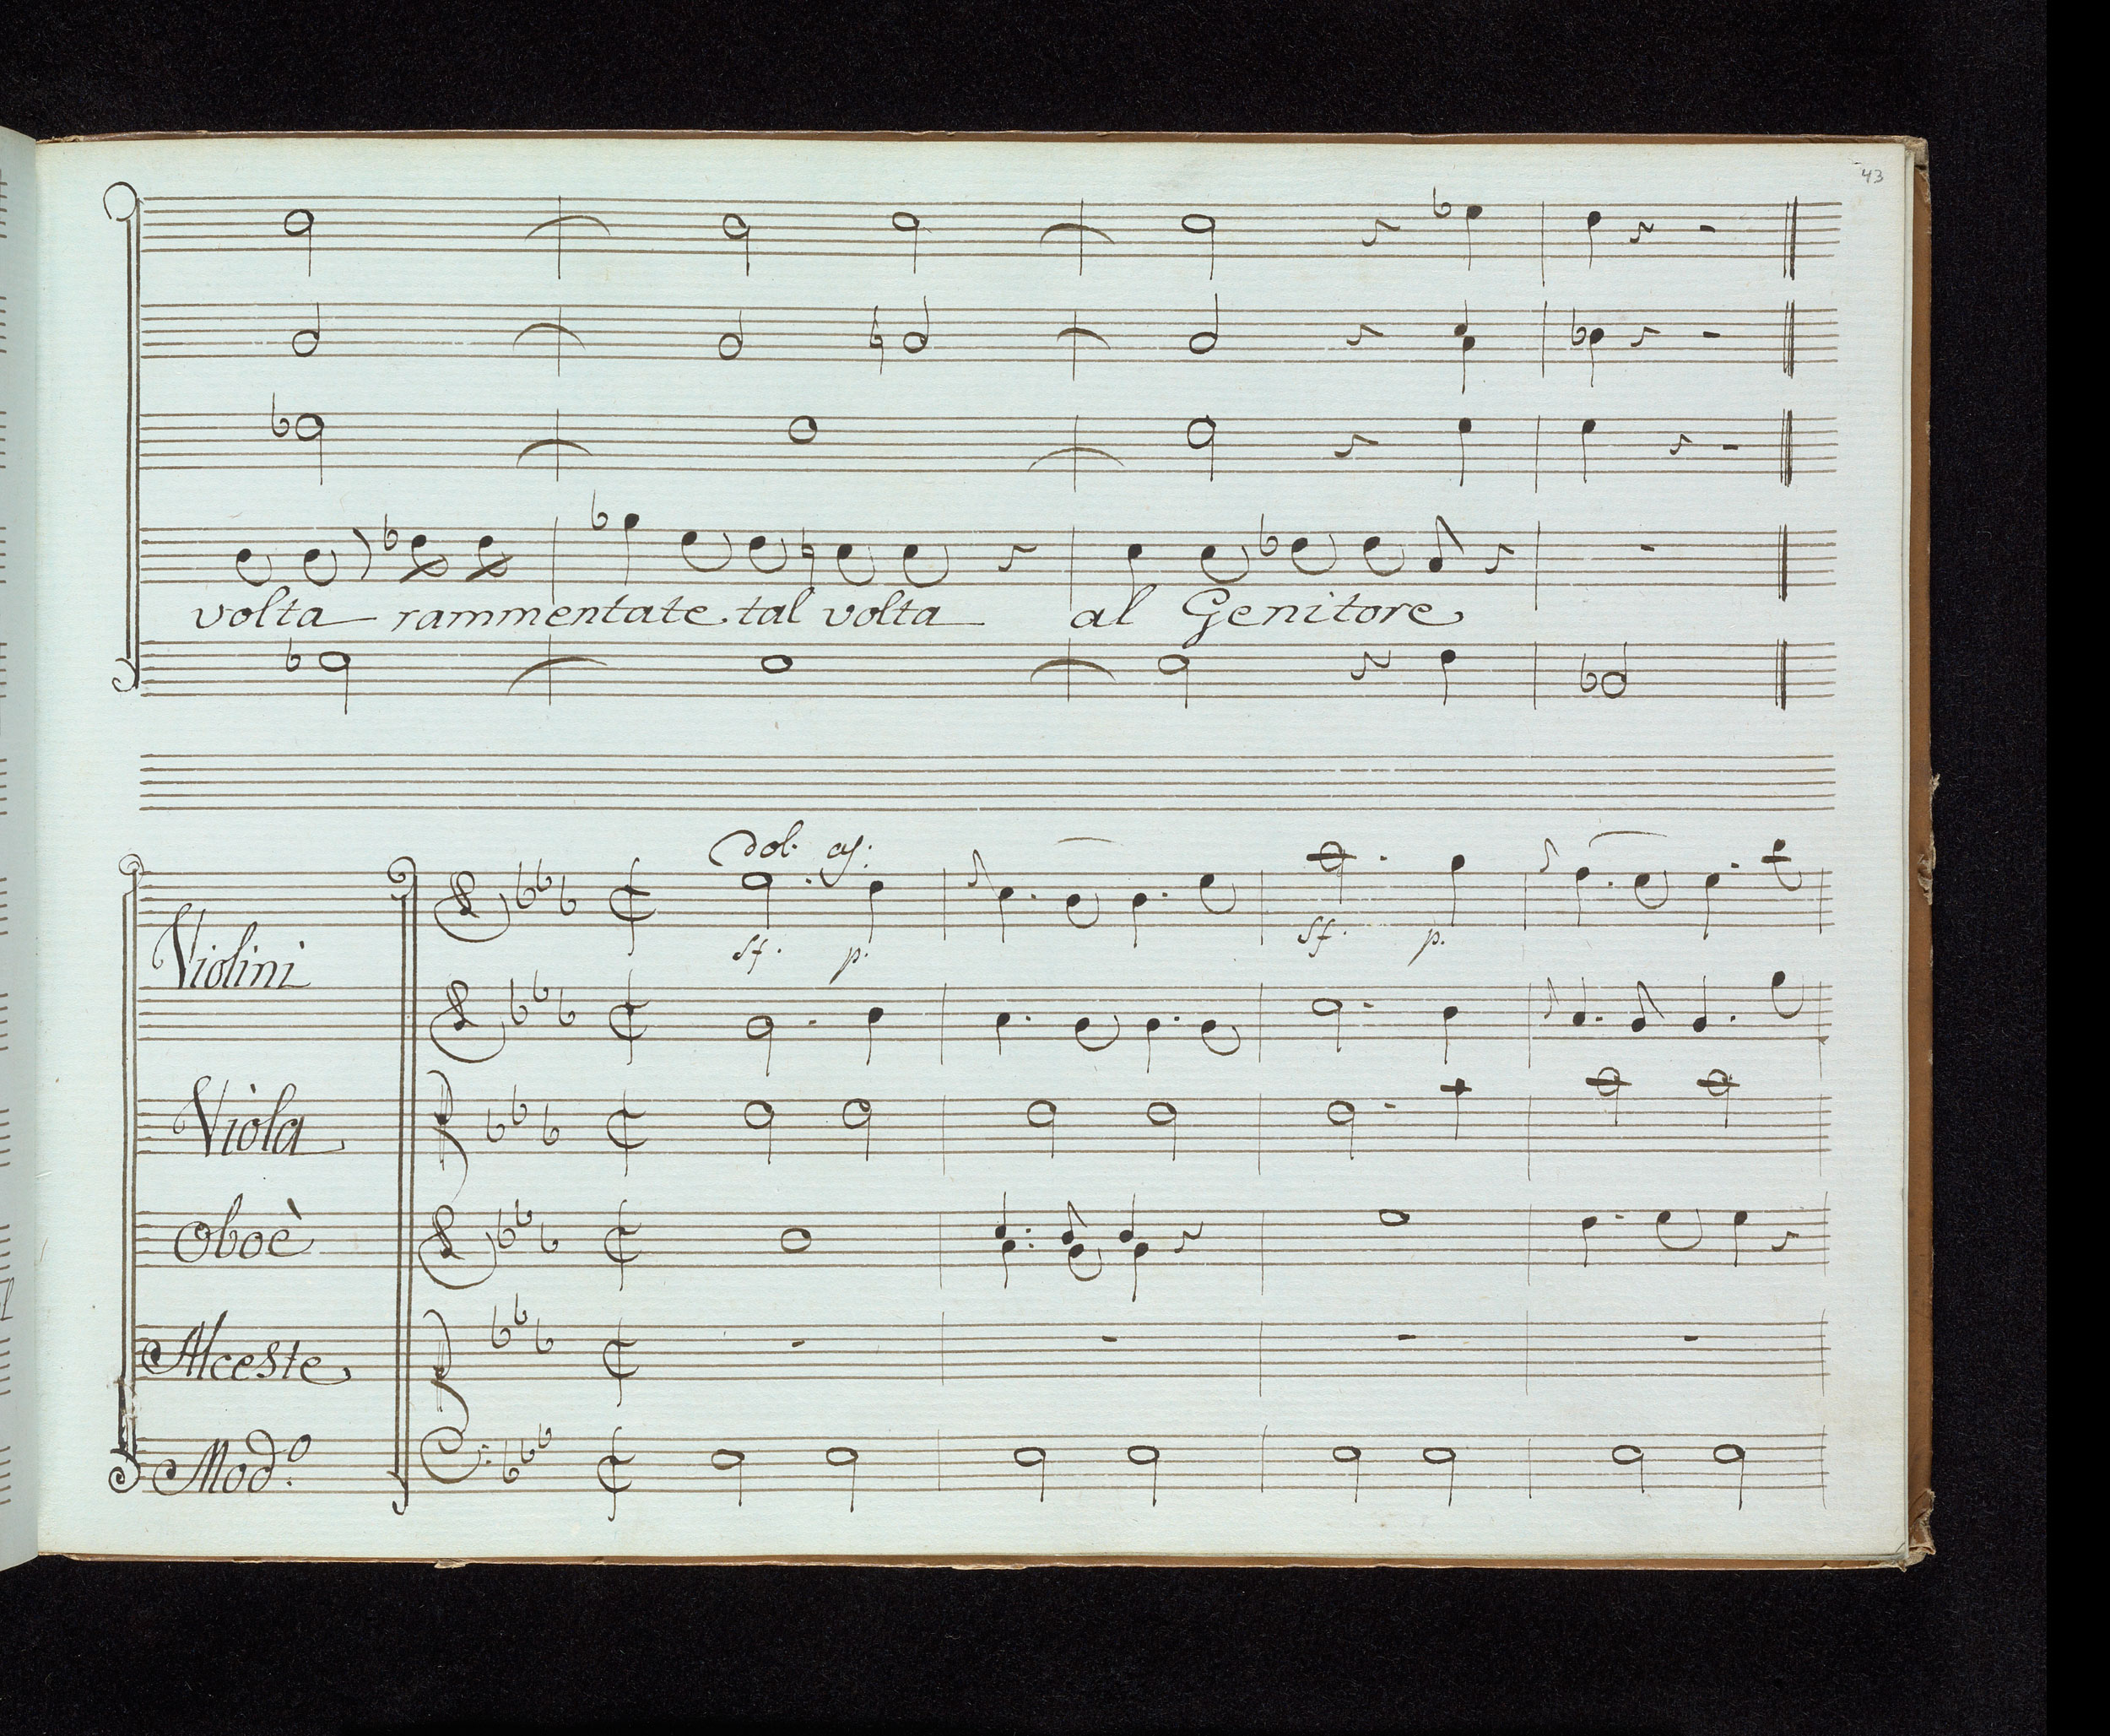 43
volta rammentate tal volta al Genitore
dol. as:
sf. p. sf. p.
Violini
Viola
Oboè
Alceste
Mod.º